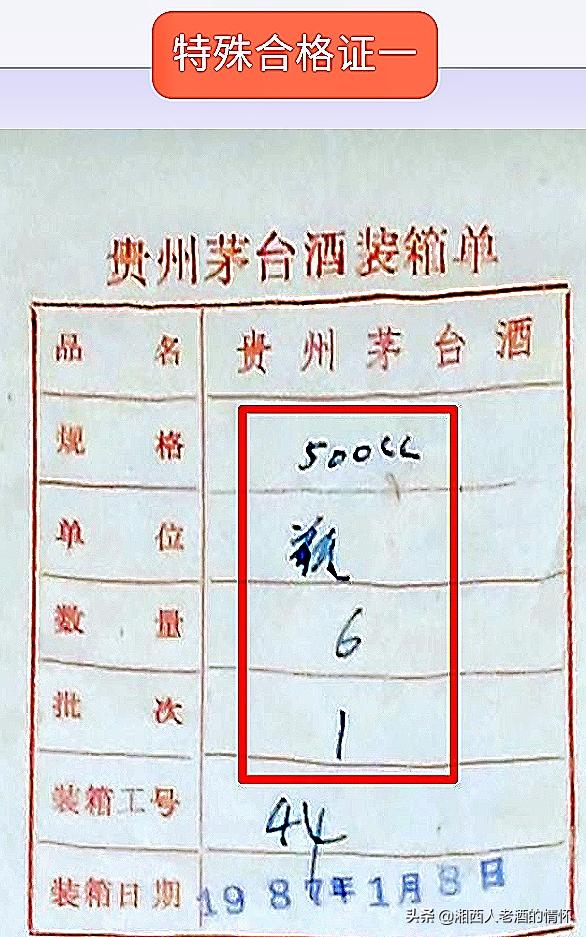 特殊合格证一
贵州茅台酒装箱单
品名 贵州茅台酒
规格 500CC
单位 瓶
数量 6
批次 1
装箱工号 44
装箱日期 1987年1月8日
头条 @湘西人老酒的情怀